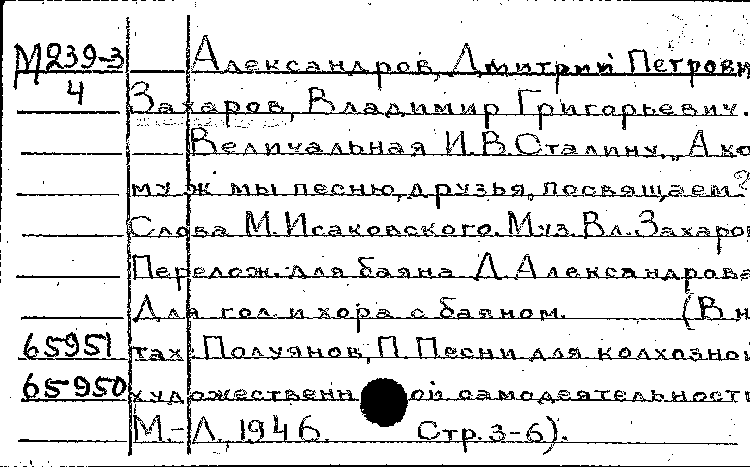 М239-3 Александров, Дмитрий Петрови
4 Захаров, Владимир Григорьевич.
Величальная И.В.Сталину. „А ко
му ж мы песню, друзья, посвящаем?
Слова М.Исаковского. Муз. Вл. Захаров
Перелож. для баяна Д.Александрова
Для гол. и хора с баяном. (В н
65951 тах: Полуянов, П. Песни для колхозной
65950 художественной самодеятельност
М.-Л., 1946. Стр.3-6).